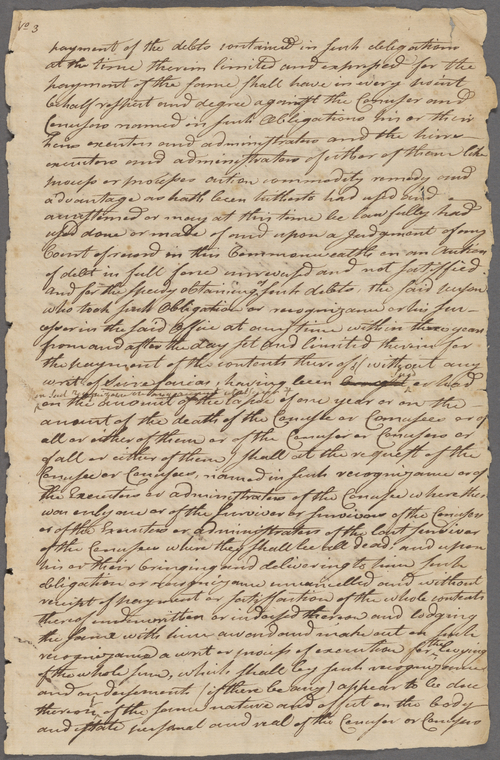 No 3
payment of the debts contained in such obligations
at the time therein limited and expressed for the
payment of the same shall have in every point
behalf respect and degree against the Conusor and
Conusors named in such Obligations his or their
heirs executors and administrators and the heirs
executors and administrators of either of them like
process or processes action commodity remedy and
advantage as hath been hitherto had used and
accustomed or may at this time be lawfully had
used done or made of and upon a Judgment of any
Court of record in this Commonwealth on an Action
of debt in full force unreversed and not satisfied
and for the speedy obtaining such debts the said person
who took such Obligation or recognizance or his suc-
cessor in the said Office at any time within three years
from and after the day set and limited therein for
the payment of the contents thereof (without any
writ of Scire facias, having been or had
on such Recognizance
on the account of the lapse of one year or on the
amount of the death of the Conusee or Conusees or of
all or either of them or of the Conusor or Conusors or
of all or either of them) shall at the request of the
Conusee or Conusees, named in such recognizance or of
the Executors or administrators of the Conusee where there
was only one or of the Survivor or Survivors of the Conusees
or of the Executors or administrators of the last Survivor
of the Conusees where they shall be all dead, and upon
his or their bringing and delivering to him such
obligation or recognizance uncancelled and without
receipt of payment or satisfaction of the whole contents
thereof underwritten or indorsed thereon and lodging
the same with him award and make out on such
recognizance a writ or process of execution for the levying
of the whole sum, which shall by such recognizance
and indorsements (if there be any) appear to be due
thereon, of the same nature and effect on the body
and estate personal and real of the Conusor or Conusors